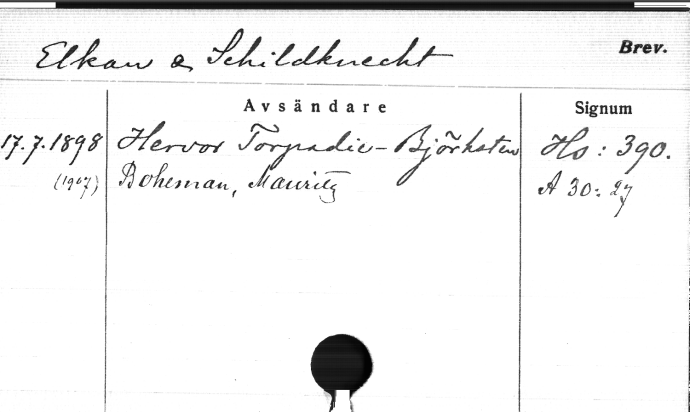 Elkan & Schildknecht
Brev.
Avsändare Signum
17.7.1898 Hervor Torpadie-Björksten Hs: 390.
(1907) Boheman, Mauritz A 30: 27